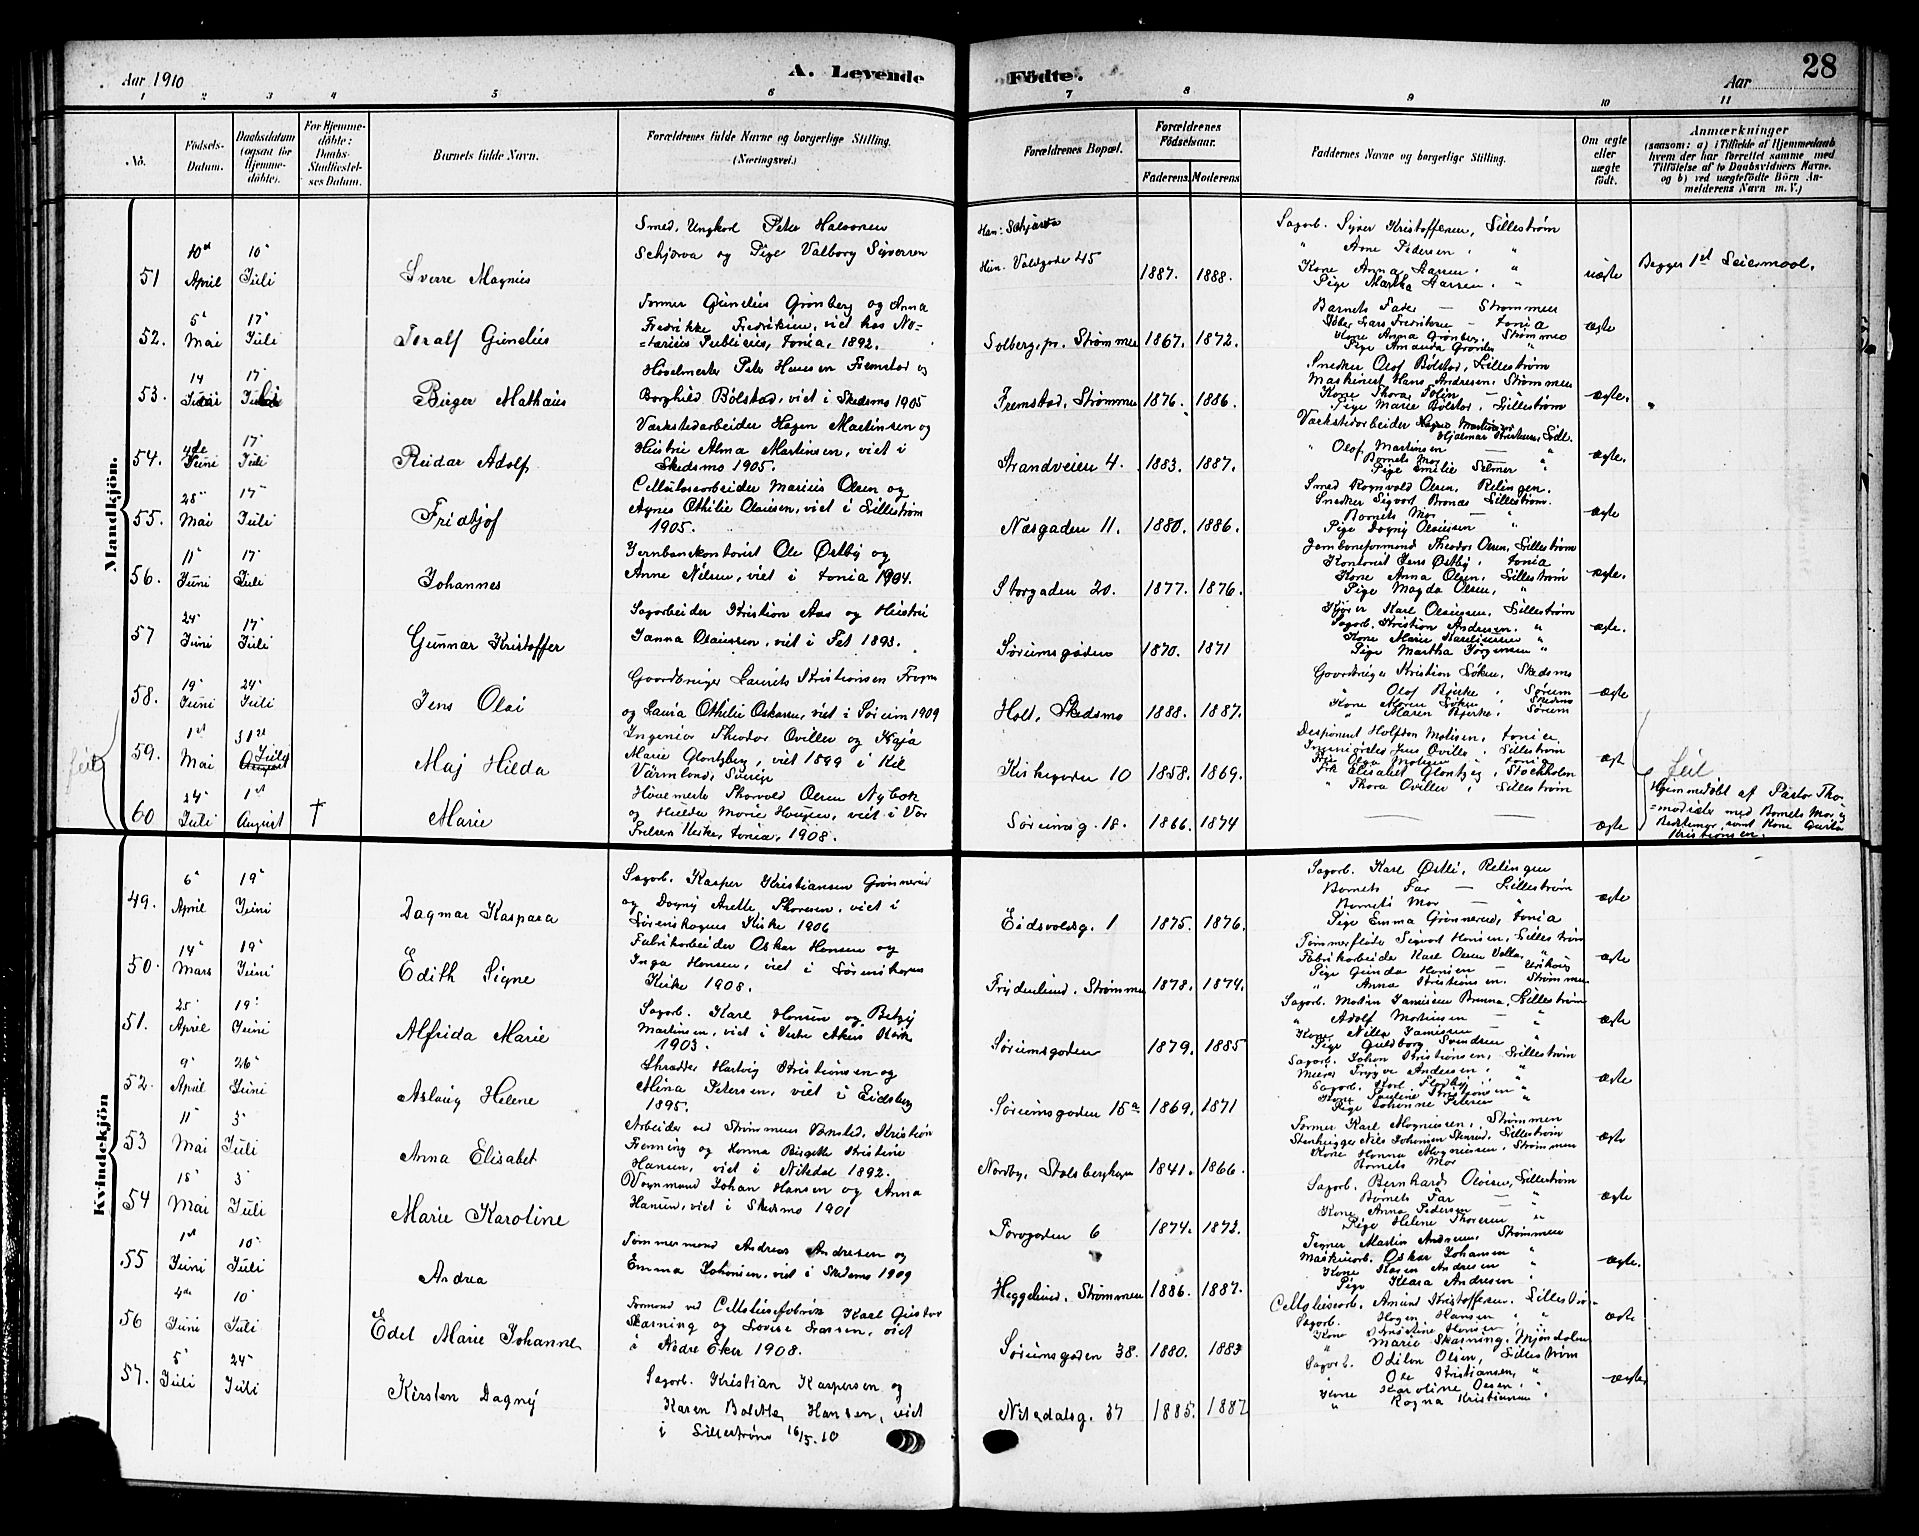 Aar 1910
A. Levende
Födte.
Aar
28
1 2 3 4 5 6 7 8 9 10 11
No.
Födsels-
Datum.
Daabsdatum
(ogsaa for
Hjemme-
döbte).
For Hjemme-
döbte:
Daabs-
Stadfæstel-
ses Datum.
Barnets fulde Navn.
Forældrenes fulde Navne og borgerlige Stilling.
(Næringsvei.)
Forældrenes Bopæl.
Forældrenes
Födselsaar.
Faderens.
Moderens
Faddernes Navne og borgerlige Stilling.
Om ægte
eller
uægte
født.
Anmærkninger
(saasom: a) i Tilfælde af Hjemmedaab
hvem der har forrettet samme med
Tilföielse af to Daabsvidners Navne.
og b) ved uægtefödte Börn An-
melderens Navn m. V.)
Mandkjön.
51
10de April
10" Juli
Sverre Magnus
Smed, Ungkarl Peter Halvorsen
Schjørva og Pige Valborg Syversen
Hun: Voldgade 45
1887. 1888.
Sagarb. Syver Kristoffersen, Lillestrøm
" Arne Pedersen, "
Kone Anna Larsen, "
Pige Martha Larsen, "
uægte
Begges 1st Leiermaal.
52.
5" Mai
17" Juli
Toralf Gundius
Former Gundius Grønberg og Anna
Fredrikke Fredriksen, viet hos No=
=tarius Publicus, Xania, 1892.
Solberg, pr. Strømmen
1867. 1872.
Barnets Fader — Strømmen
Kone Anna Grønberg, Strømmen
ægte
53.
14 Juni
17" Juli
Birger Mathæus
Høvelmester Peter Hansen Fremstad og
Borghild Bølstad, viet i Skedsmo 1905
Fremstad, Strømmen
1876. 1886.
Snedker Olof Bølstad, Lillestrøm
Maskinist Hans Andresen, Strømmen
Pige Marie Bølstad, Lillestrøm
ægte.
54.
4de Juni
17" Juli
Reidar Adolf
Værkstedarbeider Hagen Martinsen og
Hustru Alma Martinsen, viet i
Skedsmo 1905.
Strandveien 4.
1883. 1887.
" Olof Martinsen — "
Barnets Mor "
Pige Emilie Selmer "
ægte.
55.
28" Mai
17" Juli
Fridtjof
Cellulosearbeider Marius Olsen og
Agnes Othilie Olausen, viet i Lillestrøm
1905.
Næsgaden 11.
1880. 1886.
Smed Ragnvald Olsen, Relingen.
Snedker Sigvart Bronæs Lillestrøm.
Barnets Mor — "
Pige Dagny Olaussen "
ægte
56.
11" Juni
17" Juli
Johannes
Jernbanekontorist Ole Østby og
Anne Nilsen, viet i Xania 1904.
Storgaden 20.
1877. 1876.
Jernbaneformand Theodor Olsen, Lillestrøm
Kontorist Jens Østby, Xania
Kone Anna Olsen, Lillestrøm
Pige Magda Olsen, "
ægte.
57
24" Juni
17" Juli
Gunnar Kristoffer
Sagarbeider Kristian Aas og Hustru
Janna Olaussen, viet i Fet 1893.
Sørumsgaden
1870. 1871
Kjører Karl Olaussen, Lillestrøm
Sagarb. Kristian Andresen, "
Pige Martha Jørgensen "
ægte.
58.
19" Juni
24" Juli
Jens Olai
Gaardbruger Laurits Kristiansen Frogner
og Laura Othilie Oskarsen, viet i Sørum 1909
Holt, Skedsmo
1888. 1887.
Gaardbruger Kristian Løken, Skedsmo
" Olof Bjerke, Sørum
Kone Maren Løken, Skedsmo
" Maren Bjerke, Sørum
ægte
feil
59.
1st Mai
31te Juli
Maj Hilda
Ingeniør Theodor Oviller og Kaja
Marie Glontzberg, viet 1899 i Kil
Värmland, Sverige
Kirkegaden 10
1858. 1869.
Disponent Halfdan Madsen, Xania.
" Thora Oviller, Lillestrøm
ægt
feil
60
24" Juli
1st August
†
Marie
Høvlemester Thorvald Olsen Nybak
og Hulda Marie Haugen, viet i Vor
Frelsers Kirke, Xania, 1908.
Sørumsg. 18.
1866. 1874
— —
ægte
Hjemmedøbt af Pastor Tho-
=modsæter med Barnets Mor og
Bedstemor, samt Kone Gusta
Kristiansen.
Kvindekjön
49.
6" April
19" Juni
Dagmar Kaspara
Sagarb. Kasper Kristiansen Grønnerud
og Dagny Arette Thoresen, viet i
Lørenskogens Kirke 1906
Eidsvoldsg. 1
1875. 1876.
Sagarb. Karl Østli, Relingen
Barnets Far — Lillestrøm
Barnets Mor — "
Pige Emma Grønnerud, Xania
ægte
50.
14" Mars
19" Juni
Edith Signe
Fabrikarbeider Oskar Hansen og
Inga Hansen, viet i Lørenskogens
Kirke 1908.
Frydenlund, Strømmen
1878. 1874.
Tømmerfløder Sigvart Hansen, Lillestrøm
Fabrikarbeider Karl Olsen Valla, "
Pige Gunda Hansen
" Anna Kristiansen, Strømmen
ægte
51.
25" April
19" Juni
Alfrida Marie
Sagarb. Karl Hansen og Betzy
Martinsen, viet i Vestre Akers Kirke
1903.
Sørumsgaden
1879. 1885
Sagarb. Martin Jamissen Brenna, Lillestrøm
" Adolf Martinsen — "
Kone Nilla Jamissen "
Pige Guldborg Svendsen "
ægte
52.
9" April
26" Juni
Aslaug Helene
Skrædder Hartvig Kristiansen og
Mina Petersen, viet i Eidsberg
1895.
Sørumsgaden 15a
1869. 1871
Sagarb. Johan Kristiansen, Lillestrøm
Murer Trygve Andersen, "
Kone Pauline Kristiansen "
Pige Johanne Petersen "
ægte
53
11" Mai
3" Juli
Anna Elisabet
Arbeider ved Strømmens Værksted, Kristian
Frenning og Hanna Birgitte Kristine
Hansen, viet i Nitedal 1892.
Nordby, Stalsberghagen
1841. 1866.
Former Karl Magnussen, Strømmen
Kone Hanna Magnussen, Strømmen
Barnets Mor
ægte
54
18" Mai
3" Juli
Marie Karoline
Vognmand Johan Hansen og Anna
Hansen, viet i Skedsmo 1901
Torvgaden 6
1874. 1872.
Sagarb. Bernhard Olaisen, Lillestrøm
Barnets Far — "
Kone Anna Pedersen — "
Pige Helene Thoresen "
ægte
55
1st Juni
10" Juli
Andrea
Tømmermand Andreas Andresen og
Emma Johansen, viet i Skedsmo 1909
Heggelund, Strømmen
1886. 1887.
Tegner Martin Andresen, Strømmen
Maskinarb. Oskar Johansen "
Kone Karen Andresen "
Pige Klara Andresen "
ægte.
56
4de Juni
10" Juli
Edel Marie Johanne
Formand ved Cellulosefabrik Karl Gustav
Skarning og Lovise Larsen, viet
i Nedre Eker 1908.
Sørumsgaden 38.
1880. 1883
Cellulosearb. Amund Kristoffersen, Lillestrøm
Sagarb. Hagen Hansen "
Kone Kristine Hansen "
" Marie Skarning, Mjøndalen
ægte
57.
5" Juli
24" Juli
Kirsten Dagny
Sagarb. Kristian Kaspersen og
Karen Bolette Hansen, viet
i Lillestrøm 16/5.10
Nitedalsg. 37
1885. 1887
Sagarb. Odilon Olsen, Lillestrøm
" Ole Kristiansen, "
Kone Karoline Olsen, "
" Ragna Kristiansen "
ægte